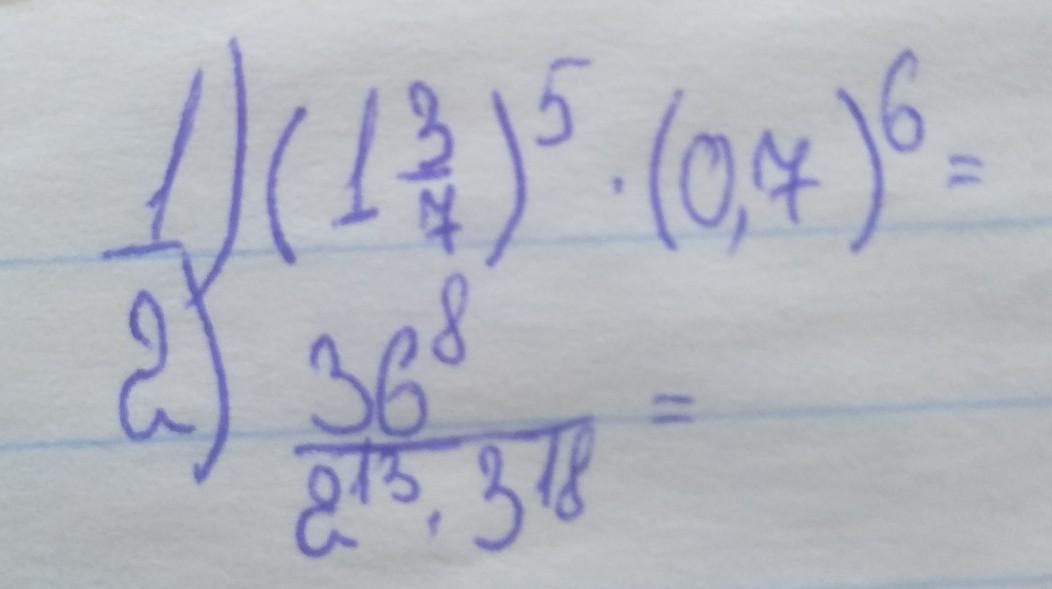 1) (1 3/7)^5 · (0,7)^6 =
2) 36^8 / (2^13 · 3^18) =